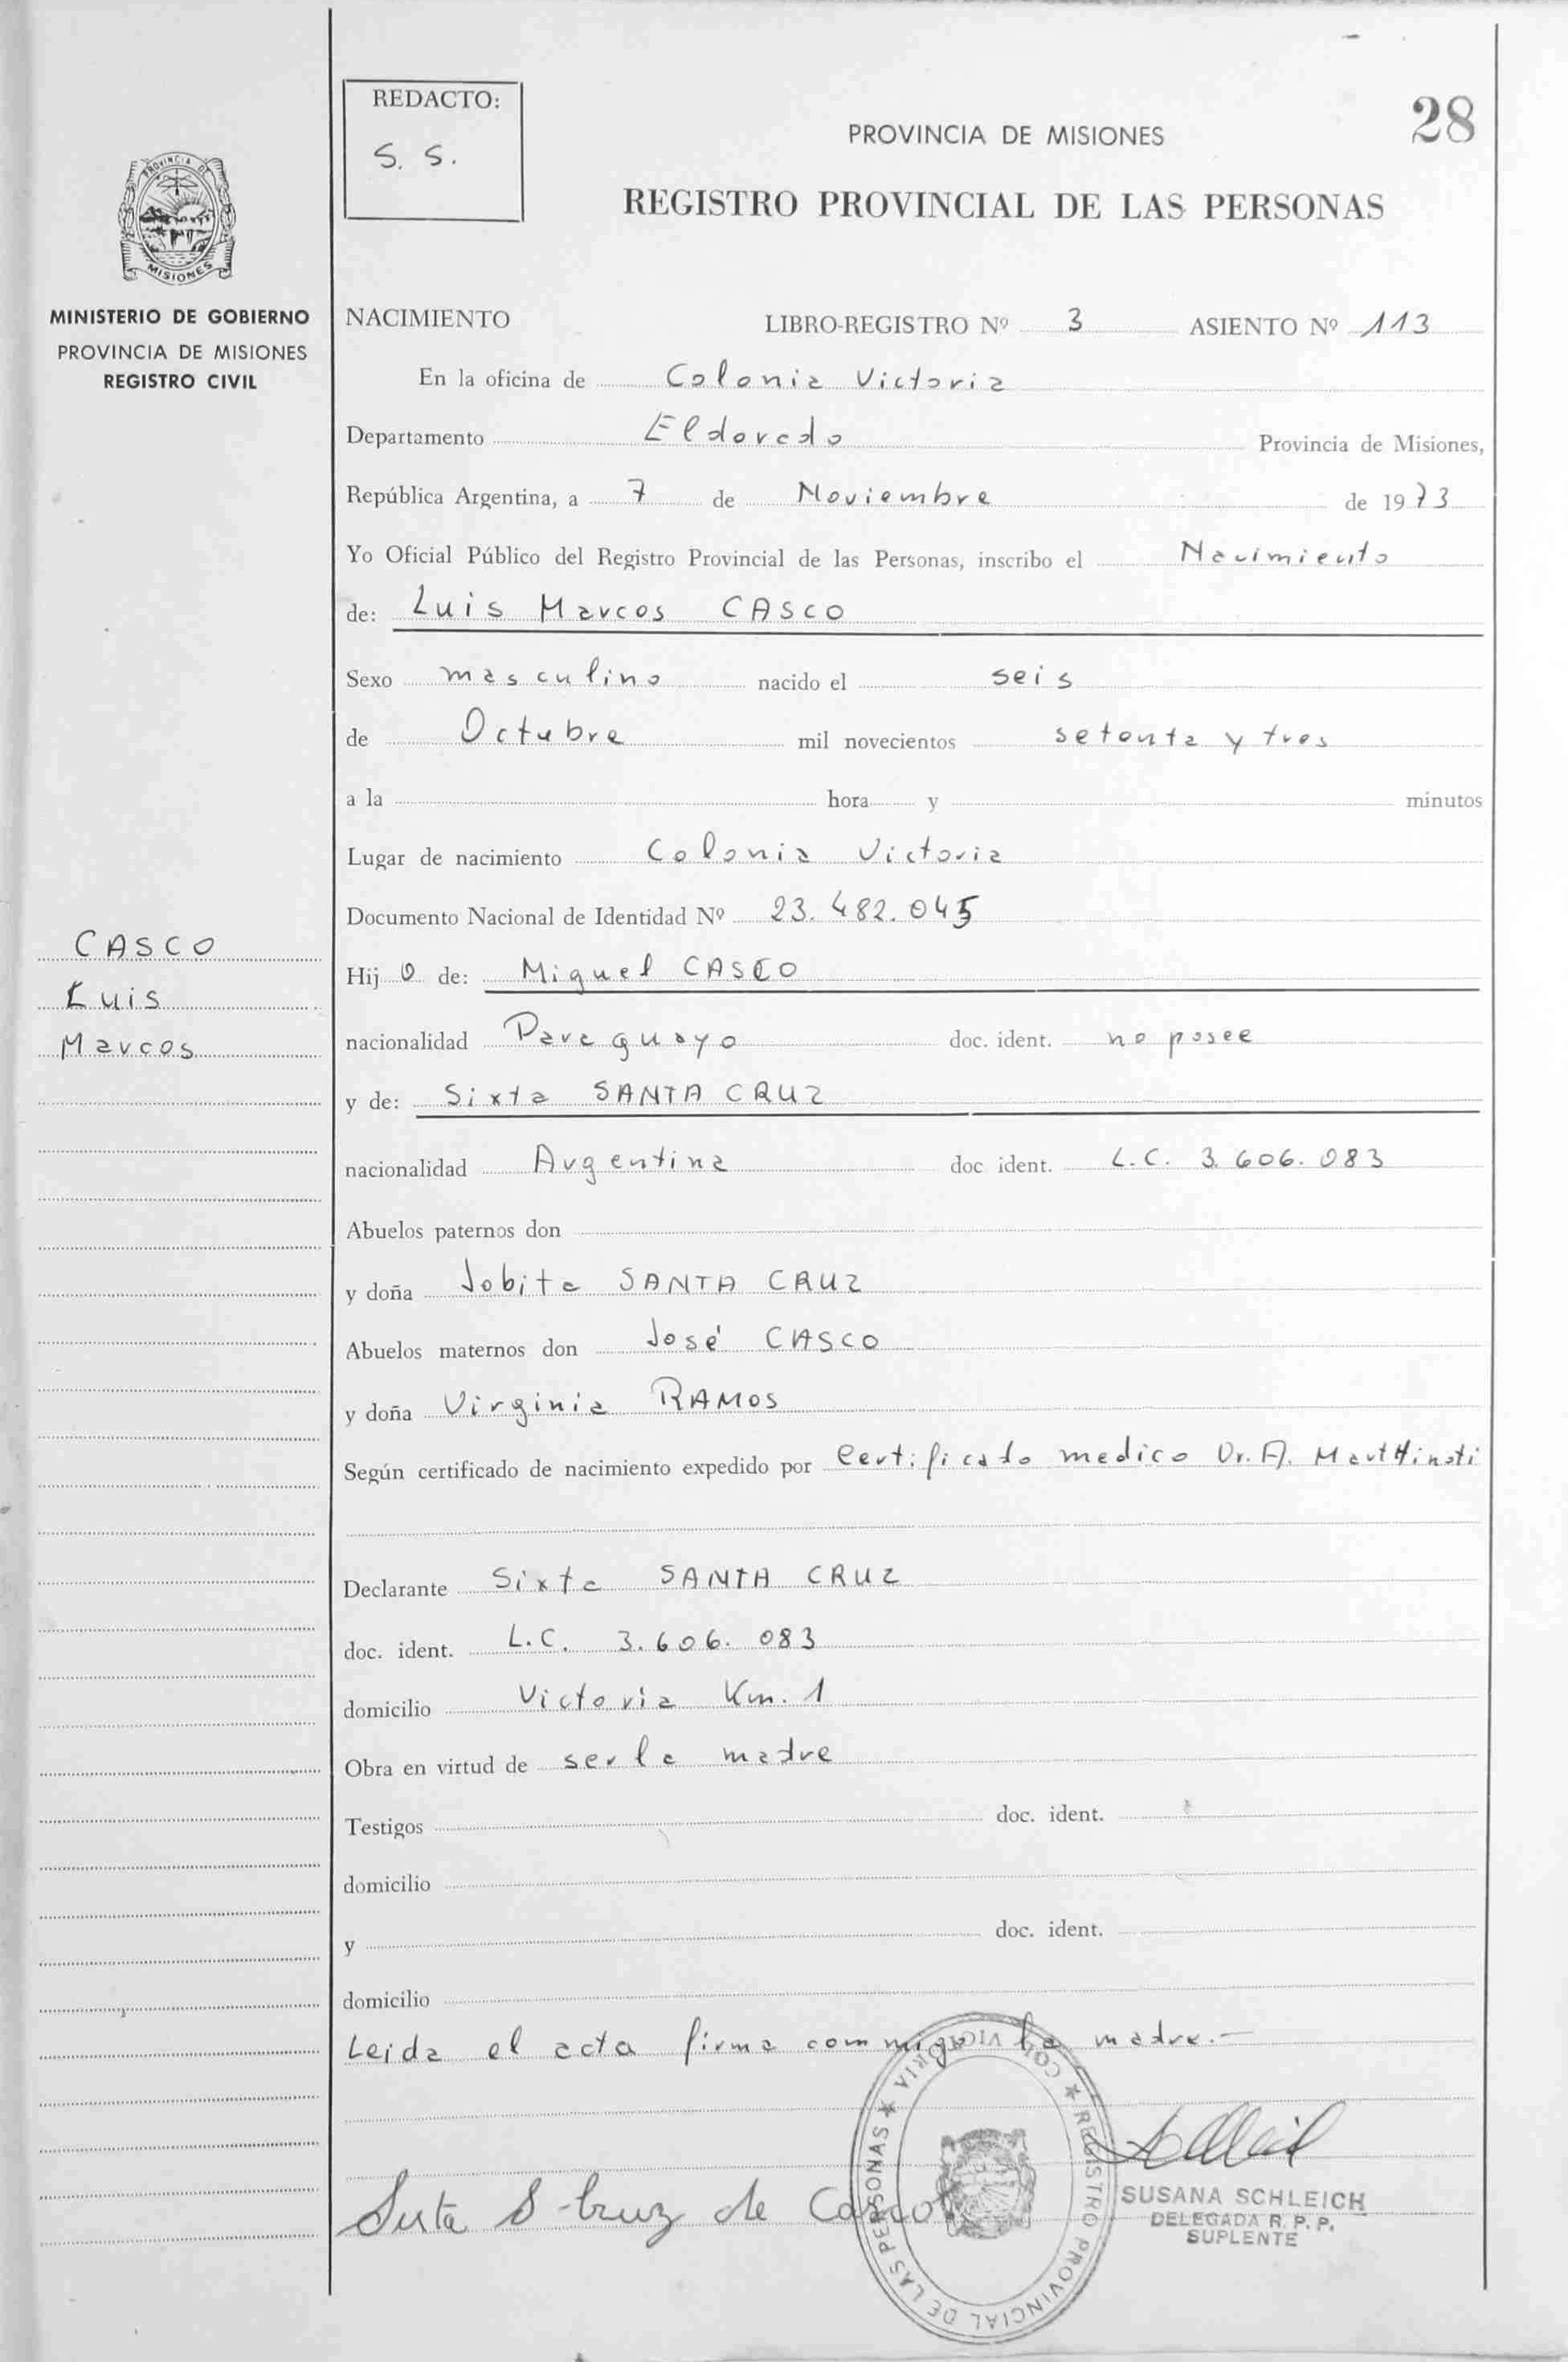 REDACTO:
S. S.
28
PROVINCIA DE MISIONES
REGISTRO PROVINCIAL DE LAS PERSONAS
PROVINCIA DE
MISIONES
MINISTERIO DE GOBIERNO
PROVINCIA DE MISIONES
REGISTRO CIVIL
NACIMIENTO LIBRO-REGISTRO Nº 3 ASIENTO Nº 113
En la oficina de Colonia Victoria
Departamento Eldorado Provincia de Misiones,
República Argentina, a 7 de Noviembre de 1973
Yo Oficial Público del Registro Provincial de las Personas, inscribo el Nacimiento
de: Luis Marcos CASCO
Sexo masculino nacido el seis
de Octubre mil novecientos setenta y tres
a la hora y minutos
Lugar de nacimiento Colonia Victoria
Documento Nacional de Identidad Nº 23.482.045
CASCO
Luis
Marcos
Hijo de: Miguel CASCO
nacionalidad Paraguayo doc. ident. no posee
y de: Sixta SANTA CRUZ
nacionalidad Argentina doc ident. L.C. 3.606.083
Abuelos paternos don
y doña Jobita SANTA CRUZ
Abuelos maternos don José CASCO
y doña Virginia RAMOS
Según certificado de nacimiento expedido por Certificado medico Dr. A.
Declarante Sixta SANTA CRUZ
doc. ident. L.C. 3.606.083
domicilio Victoria Km. 1
Obra en virtud de ser la madre
Testigos doc. ident.
domicilio
y doc. ident.
domicilio
Leida el acta firma conmigo la madre.-
Sixta S Cruz de Casco
REGISTRO PROVINCIAL DE LAS PERSONAS ★ COL. VICTORIA ★
SUSANA SCHLEICH
DELEGADA R. P. P.
SUPLENTE